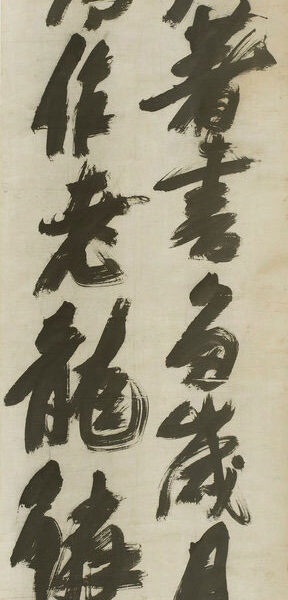 著書多歲月
作老龍鱗